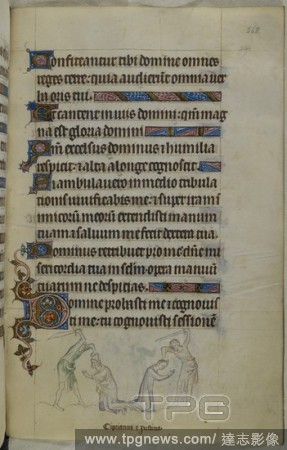 Confiteantur tibi domine omnes
reges terre: quia audierunt omnia ver
ba oris tui.
Et cantent in uiis domini: qm̄ mag
na est gloria domini
Qm̄ excelsus dominus & humilia
respicit: & alta a longe cognoscit.
Si ambulauero in medio tribula
tionis uiuificabis me: & super iram i
nimicorū meorū extendisti manum
tuam & saluum me fecit dextera tua
Dominus retribuet pro me: dn̄e mi
sericordia tua in sc̄lm: opera manuū
tuarum ne despicias.
Domine probasti me & cognouis
ti me: tu cognouisti sessionē
TPG
Ciprianus &
www.tpgnews.com | 達志影像